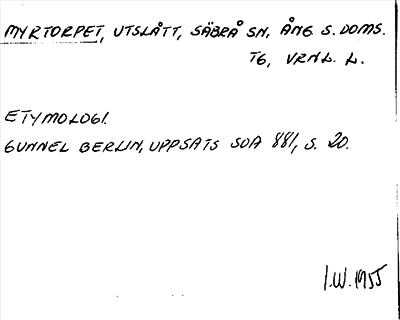 MYRTORPET, UTSLÅTT, SÄBRÅ SN, ÅNG. S. DOMS.
TG, VRNL. L.
ETYMOLOGI.
GUNNEL BERLIN, UPPSATS SOA 881, S. 20.
I.W. 1955